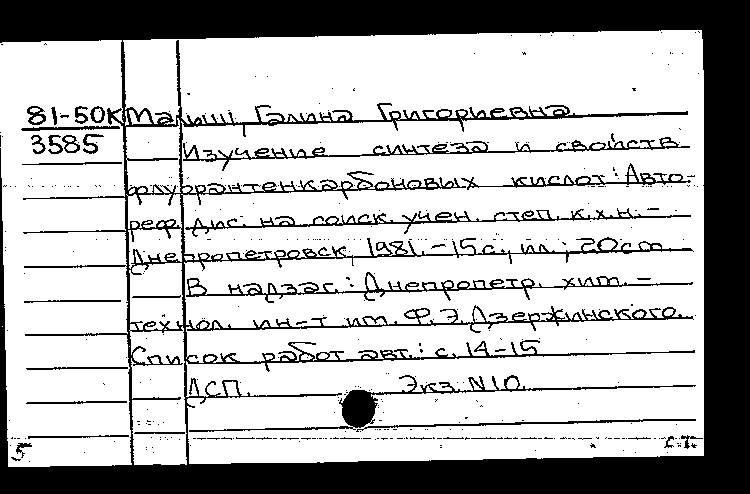 81-50К Малиш, Галина Григориевна
3585
Изучение синтеза и свойств
флуорантенкарбоновых кислот: Авто-
реф. дис. на соиск. учен. степ. к.х.н. -
Днепропетровск, 1981. - 15 с., ил.; 20 см. -
В надзаг.: Днепропетр. хим. -
технол. ин-т им. Ф.Э. Дзержинского.
Список работ авт.: с. 14-15
ДСП. Экз. N 10.
5 С.Т.